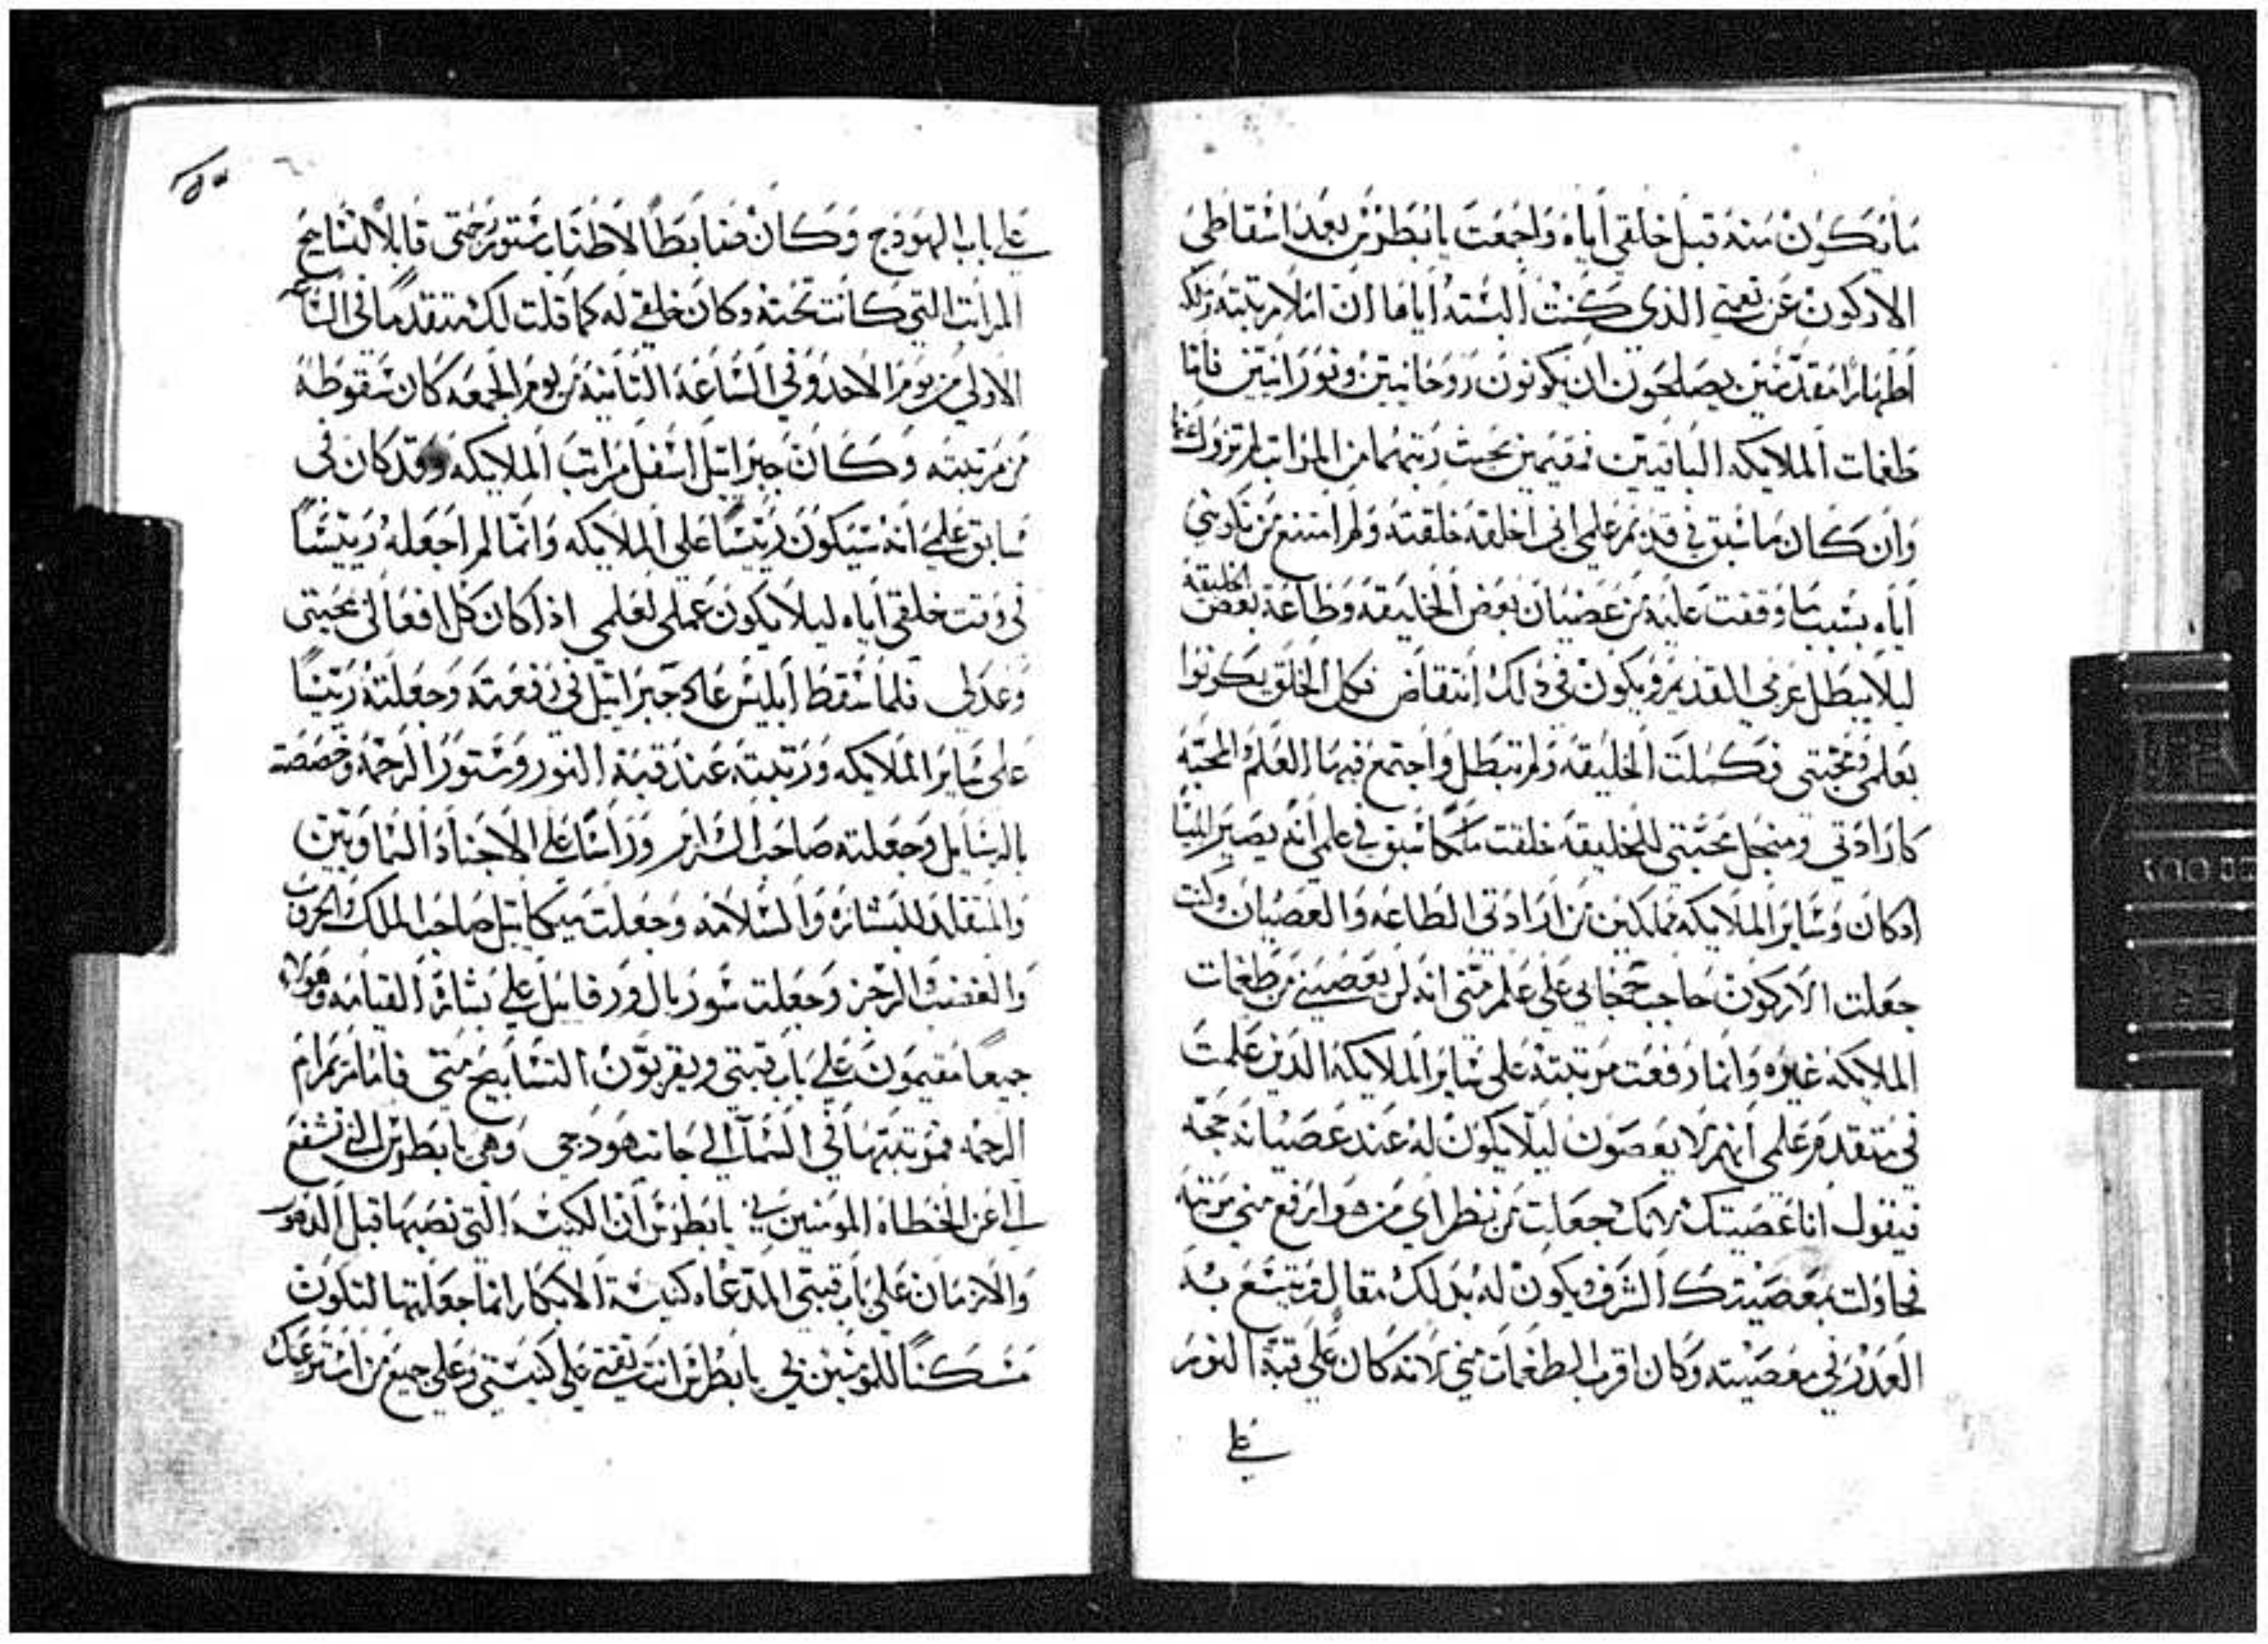 ما يكون منه قبل خلقي اياه واجمعت يا بطرس بعد اسقاطي
الاركون عن نعمتي الذي كنت البسته اياها ان املا مرتبته وتلكه
اطهارا مقدسين يصلحون ان يكونون روحانيين ونورانيين فاما
طغمات الملايكه الباقيين فمقيمين بحيث رتبهما من المراتب لم تزول عنها
وان كان ما سبق في قديم علمي اني اخلقه خلقته ولم امتنع من تكويني
اياه بسبب ما وقفت عليه من عصيان بعض الخليقه وطاعة بعض الخليقة
ليلا يبطل عزمي القديم ويكون في ذلك انتقاض فكل الخلق يكونوا
بعلمي ومحبتي فكملت الخليقه ولم تبطل واجتمع فيها العلم والمحبة
كارادتي ومنجل محبتي للخليقه خلقت ملكا سبق في علمي انه يصير ابليسا
اذ كان وساير الملايكه مملكين من ارادتي الطاعه والعصيان وكنت
جعلت الاركون حاجب حجابي على علم مني انه لن يعصيني من طغمات
الملايكه غيره وانما رفعت مرتبته على ساير الملايكه الذين علمت
في متقدم علمي انهم لا يعصون ليلا يكون له عند عصيانه حجه
فيقول انا عصيتك لانك جعلت من نظراي من هو ارفع مني مرتبة
فحاولت بمعصيتك الشرف ويكون له بذلك مقال ويتسع به
العذر في معصيته وكان اقرب الطغمات مني لانه كان على قبة النور
على
على باب الهودج وكان ضابطا لاطناب ستور رحمتي قابلا لتسابيح
المراتب التي كانت تحته وكان خلقي له كما قلت لك متقدما في الساعه
الاولى من يوم الاحد وفي الساعة الثانية من يوم الجمعه كان سقوطه
من مرتبته وكان جبراييل اسفل مراتب الملايكه وقد كان في
سابق علمي انه سيكون رييسا على الملايكه وانما لم اجعله رييسا
في وقت خلقي اياه ليلا يكون عملي لعلمي اذ كان كل افعالي بمحبتي
وعدلي فلما سقط ابليس عاد جبراييل في رفعته وجعلته رييسا
على ساير الملايكه ورتبته عند قبة النور وستور الرحمه وخصصته
بالرسايل وجعلته صاحب السراير وراسا على الاجناد السماويين
والمتقلد للبشاره والسلامه وجعلت ميكاييل صاحب الملك والحروب
والغضب والرجز وجعلت سوريال ورفاييل على بشارة القيامه وهولاء
جميعا مقيمون على باب قبتي ويقربون التسابيح مني فاما مريم ام
الرحمه فمرتبتها في السماا الى جانب هودجي وهي يا بطرس التي تشفع
الي عن الخطاه المومنين بي يا بطرس ان الكنيسه التي نصبها قبل الدهور
والازمان على باب قبتي المدعاه كنيسة الابكار انما جعلتها لتكون
مسكنا للمومنين بي يا بطرس انت ثقتي على كنيستي وعلى جميع من استرعيك